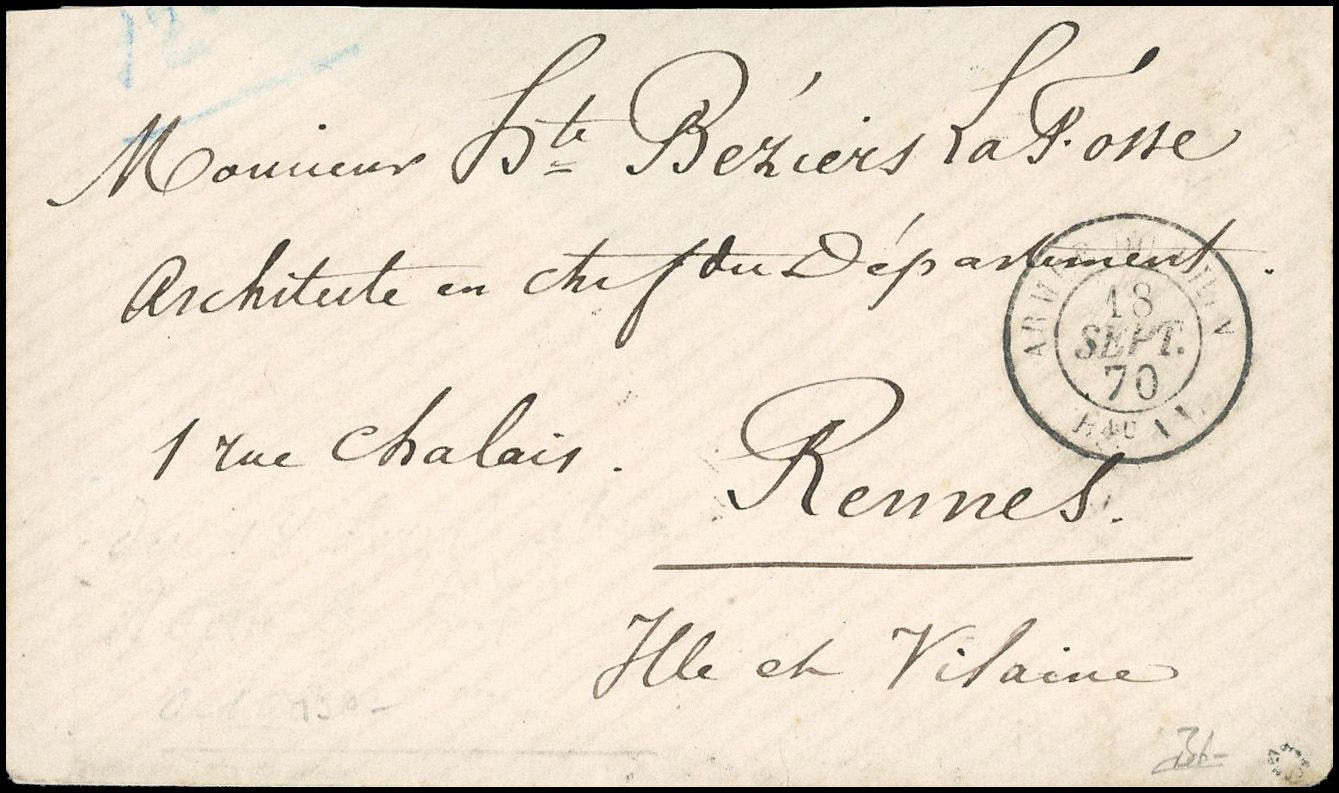 12
Monsieur Hte Béziers La Fosse
Architecte en chef du Département.
ARMÉE DU RHIN
18
SEPT.
70
1 rue Chalais.
Rennes.
Ille et Vilaine